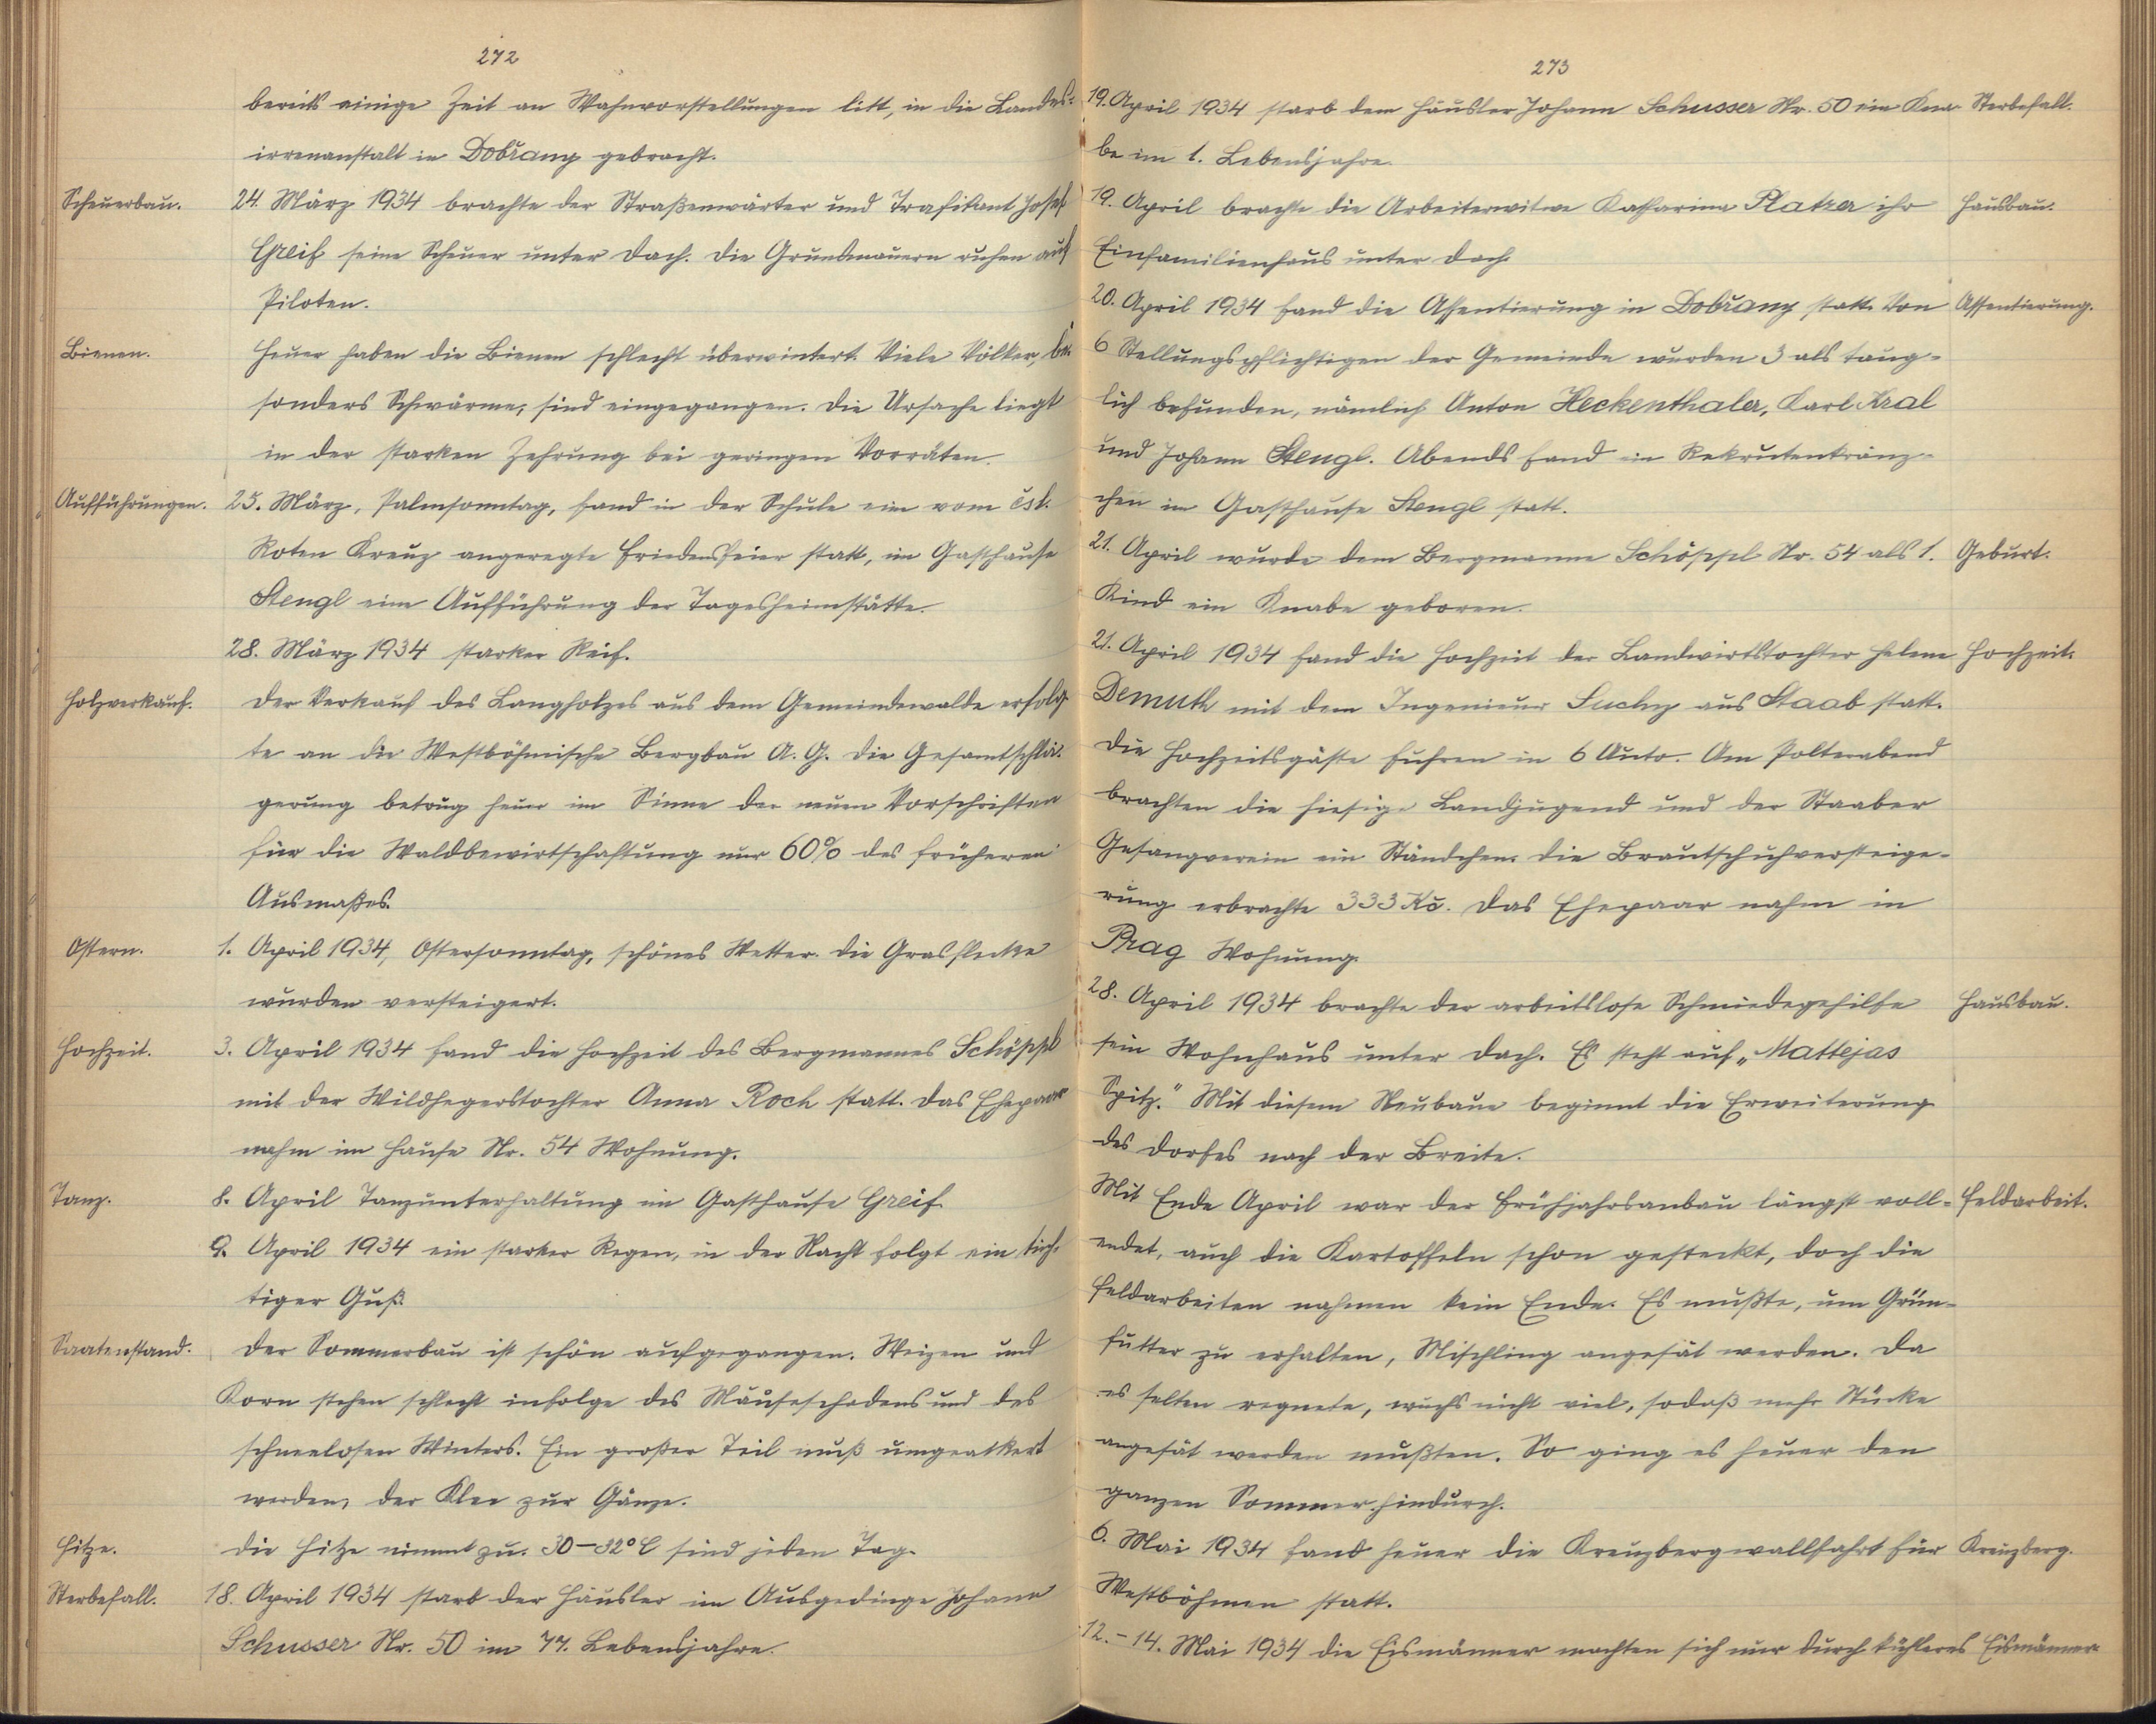 272
bereits einige Zeit an Wahnvorstellungen litt, in die Landes-
irrenanstalt in Dobřany gebracht.
Scheuerbau. 24. März 1934 brachte der Straßenwärter und Trafikant Josef
Greif seine Scheuer unter Dach. Die Grundmauern ruhen auf
Piloten.
Bienen. Heuer haben die Bienen schlecht überwintert. Viele Völker, be-
sonders Schwärme, sind eingegangen. Die Ursache liegt
in der starken Zehrung bei geringen Vorräten.
Aufführungen. 25. März, Palmsonntag, fand in der Schule eine vom čsl.
Roten Kreuz angeregte Friedensfeier statt, im Gasthause
Stengl eine Aufführung der Tagesheimstätte.
28. März 1934 starker Reif.
Holzverkauf. Der Verkauf des Langholzes aus dem Gemeindewalde erfolg-
te an die Westböhmische Bergbau A. G. Die Gesamtschlä-
gerung betrug heuer im Sinne der neuen Vorschriften
für die Waldbewirtschaftung nur 60% des früheren
Ausmaßes.
Ostern. 1. April 1934, Ostersonntag, schönes Wetter. Die Grasflecke
wurden versteigert.
Hochzeit. 3. April 1934 fand die Hochzeit des Bergmannes Schöppl
mit der Wildhegerstochter Anna Roch statt. Das Ehepaar
nahm im Hause Nr. 54 Wohnung.
Tanz. 8. April Tanzunterhaltung im Gasthause Greif.
9. April 1934 ein starker Regen, in der Nacht folgt ein tüch-
tiger Guß.
Saatenstand. Der Sommerbau ist schön aufgegangen. Weizen und
Korn stehen schlecht infolge des Mäuseschadens und des
schneelosen Winters. Ein großer Teil muß umgeackert
werden, der Klee zur Gänze.
Hitze. Die Hitze nimmt zu. 30–32° C sind jeden Tag.
Sterbefall. 18. April 1934 starb der Häusler im Ausgedinge Johann
Schusser Nr. 50 im 77. Lebensjahre.
273
19. April 1934 starb dem Häusler Johann Schusser Nr. 50 ein Kna- Sterbefall.
be im 1. Lebensjahre.
19. April brachte die Arbeiterwitwe Katharina Platzer ihr Hausbau.
Einfamilienhaus unter Dach.
20. April 1934 fand die Assentierung in Dobřany statt. Von Assentierung.
6 Stellungspflichtigen der Gemeinde wurden 3 als taug-
lich befunden, nämlich Anton Heckenthaler, Karl Kral
und Johann Stengl. Abends fand ein Rekrutenkränz-
chen im Gasthause Stengl statt.
21. April wurde dem Bergmanne Schöppl Nr. 54 als 1. Geburt.
Kind ein Knabe geboren.
21. April 1934 fand die Hochzeit der Landwirtstochter Helene Hochzeit.
Demuth mit dem Ingenieur Suchy aus Staab statt.
Die Hochzeitsgäste fuhren in 6 Auto. Am Polterabend
brachten die hiesige Landjugend und der Staaber
Gesangverein ein Ständchen. Die Brautschuhversteige-
rung erbrachte 333 Kč. Das Ehepaar nahm in
Prag Wohnung.
28. April 1934 brachte der arbeitslose Schmiedegehilfe Hausbau.
sein Wohnhaus unter Dach. Es steht auf „Mattejas
Spitz." Mit diesem Neubaue beginnt die Erweiterung
des Dorfes nach der Breite.
Mit Ende April war der Frühjahrsanbau längst voll- Feldarbeit.
endet, auch die Kartoffeln schon gesteckt, doch die
Feldarbeiten nahmen kein Ende. Es mußte, um Grün-
futter zu erhalten, Mischling angesät werden. Da
es selten regnete, wuchs nicht viel, sodaß mehr Stücke
angesät werden mußten. So ging es heuer den
ganzen Sommer hindurch.
6. Mai 1934 fand heuer die Kreuzbergwallfahrt für Kreuzberg.
Westböhmen statt.
12.–14. Mai 1934 die Eismänner machten sich nur durch kühleres Eismänner.